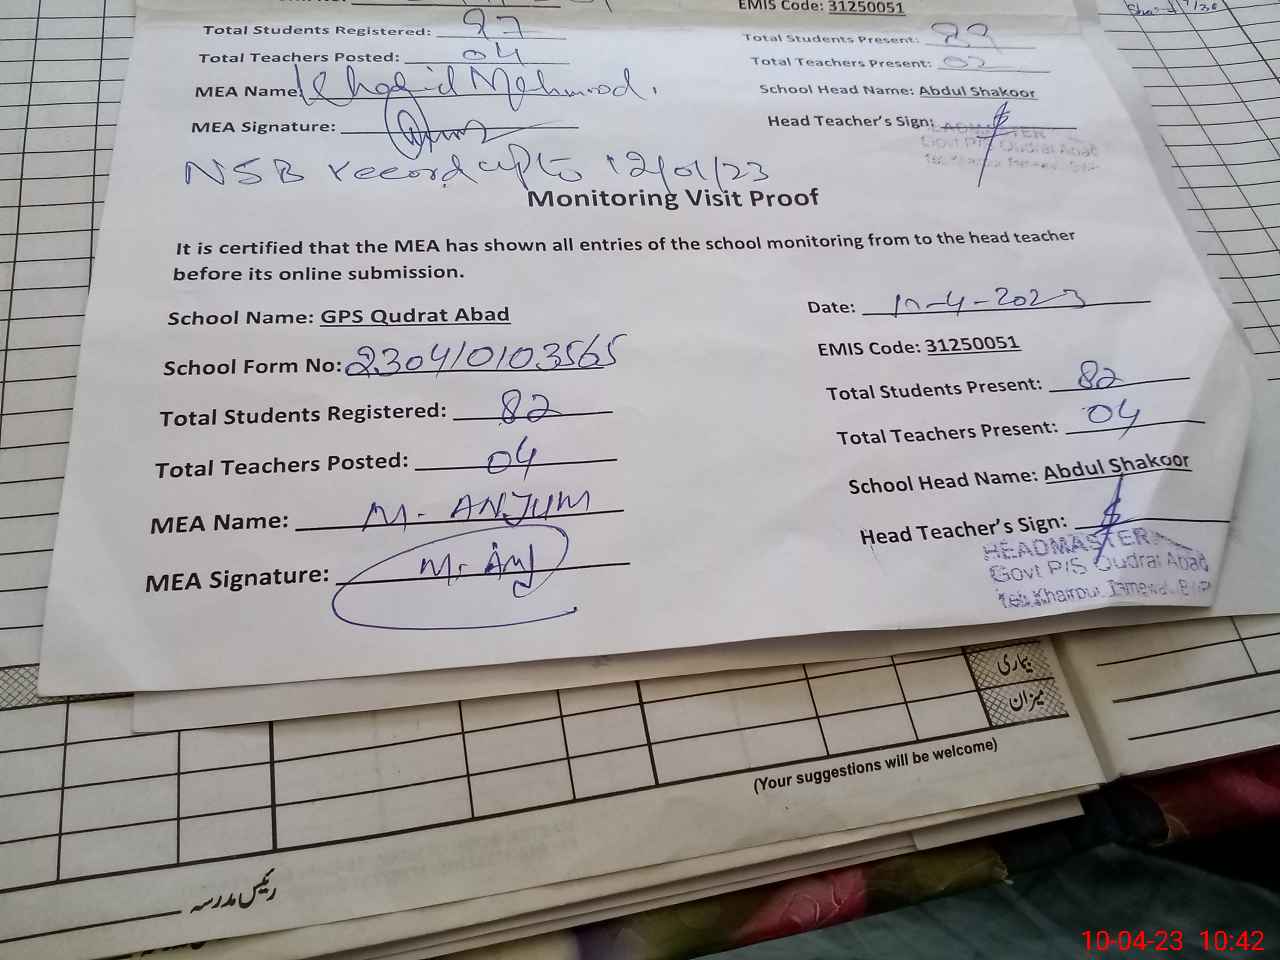 EMIS Code: 31250051
Total Students Registered: 97
Total Students Present: 89
Total Teachers Posted: 04
Total Teachers Present: 02
MEA Name: Khalid Mehmood.
School Head Name: Abdul Shakoor
MEA Signature:
Head Teacher's Sign:
HEADMASTER
Govt P/S Qudrat Abad
NSB record upto 12/01/23
Monitoring Visit Proof
It is certified that the MEA has shown all entries of the school monitoring from to the head teacher
before its online submission.
School Name: GPS Qudrat Abad
Date: 10-4-2023
School Form No: 2304/0103565
EMIS Code: 31250051
Total Students Registered: 82
Total Students Present: 82
Total Teachers Posted: 04
Total Teachers Present: 04
MEA Name: M. ANJUM
School Head Name: Abdul Shakoor
MEA Signature: M. Anj
Head Teacher's Sign:
HEADMASTER
Govt P/S Qudrat Abad
Teh. Khairpur Tamewali BWP
بیماری
میزان
(Your suggestions will be welcome)
رئیس مدرسہ
10-04-23 10:42